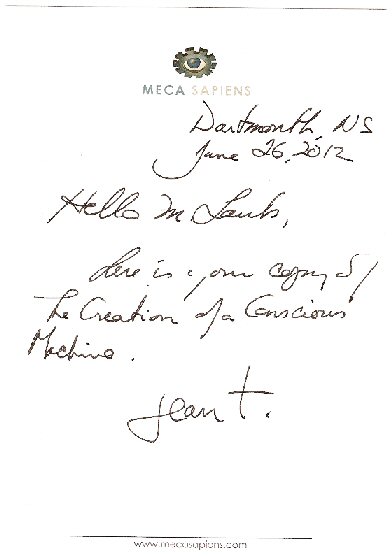 MECA SAPIENS
Dartmouth, NS
June 26, 2012
Hello Mr
Here is your copy of
The Creation of a Conscious
Machine.
Jean T.
www.mecasapiens.com